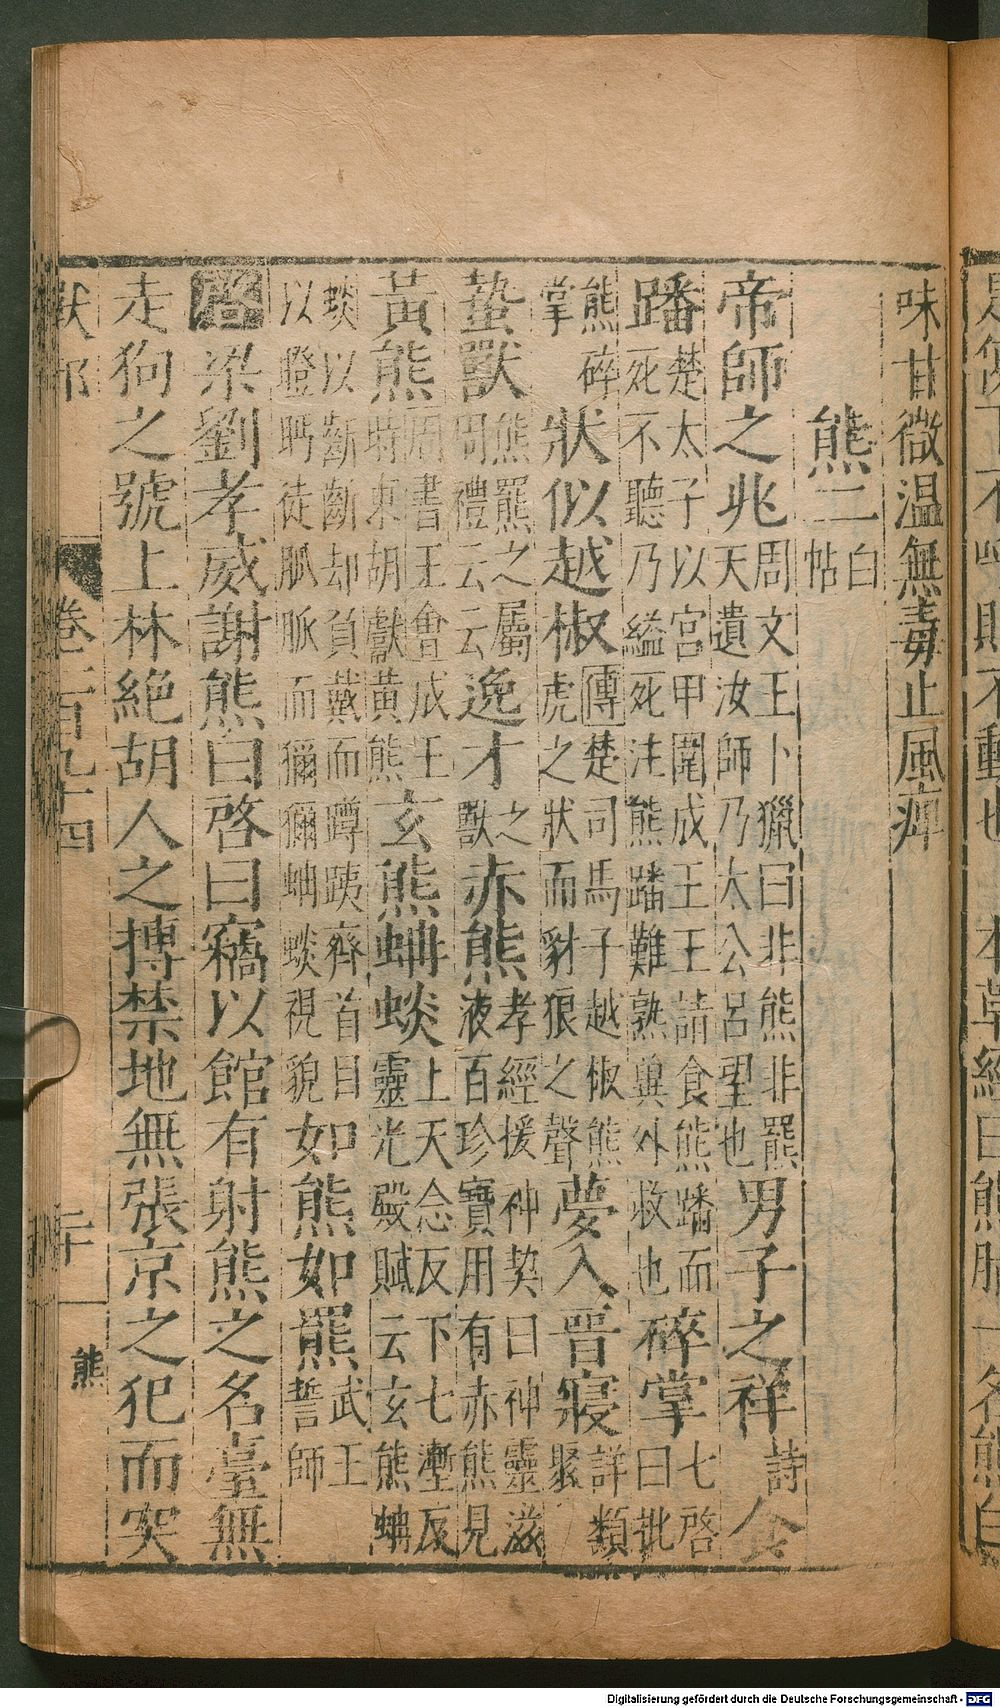 味甘微温無毒止風痺
熊二白帖
帝師之兆周文王卜獵曰非熊非羆天遺汝師乃太公呂望也男子之祥詩食
蹯楚太子以宮甲圍成王王請食熊蹯而死不聽乃縊死注熊蹯難熟兾外救也碎掌七啓曰批
熊碎掌狀似越椒傳楚司馬子越椒熊虎之狀而豺狼之聲夢入晉寢詳類聚
蟄獸熊羆之屬周禮云云逸才之獸赤熊孝經援神契曰神靈滋液百珍寶用有赤熊見
黃熊周書王會成王時東胡獻黃熊玄熊蚺蜒上天念反下七漸反靈光殿賦云玄熊蚺
蜒以齗齗却負戴而蹲跠齊首目以瞪眄徒脈脈而狋狋蚺蜒視貌如熊如羆武王誓師
啓梁劉孝威謝熊白啓曰竊以館有射熊之名臺無
走狗之號上林絕胡人之搏禁地無張京之犯而突
獸部
卷一百九十四
二十
熊
Digitalisierung gefördert durch die Deutsche Forschungsgemeinschaft - DFG